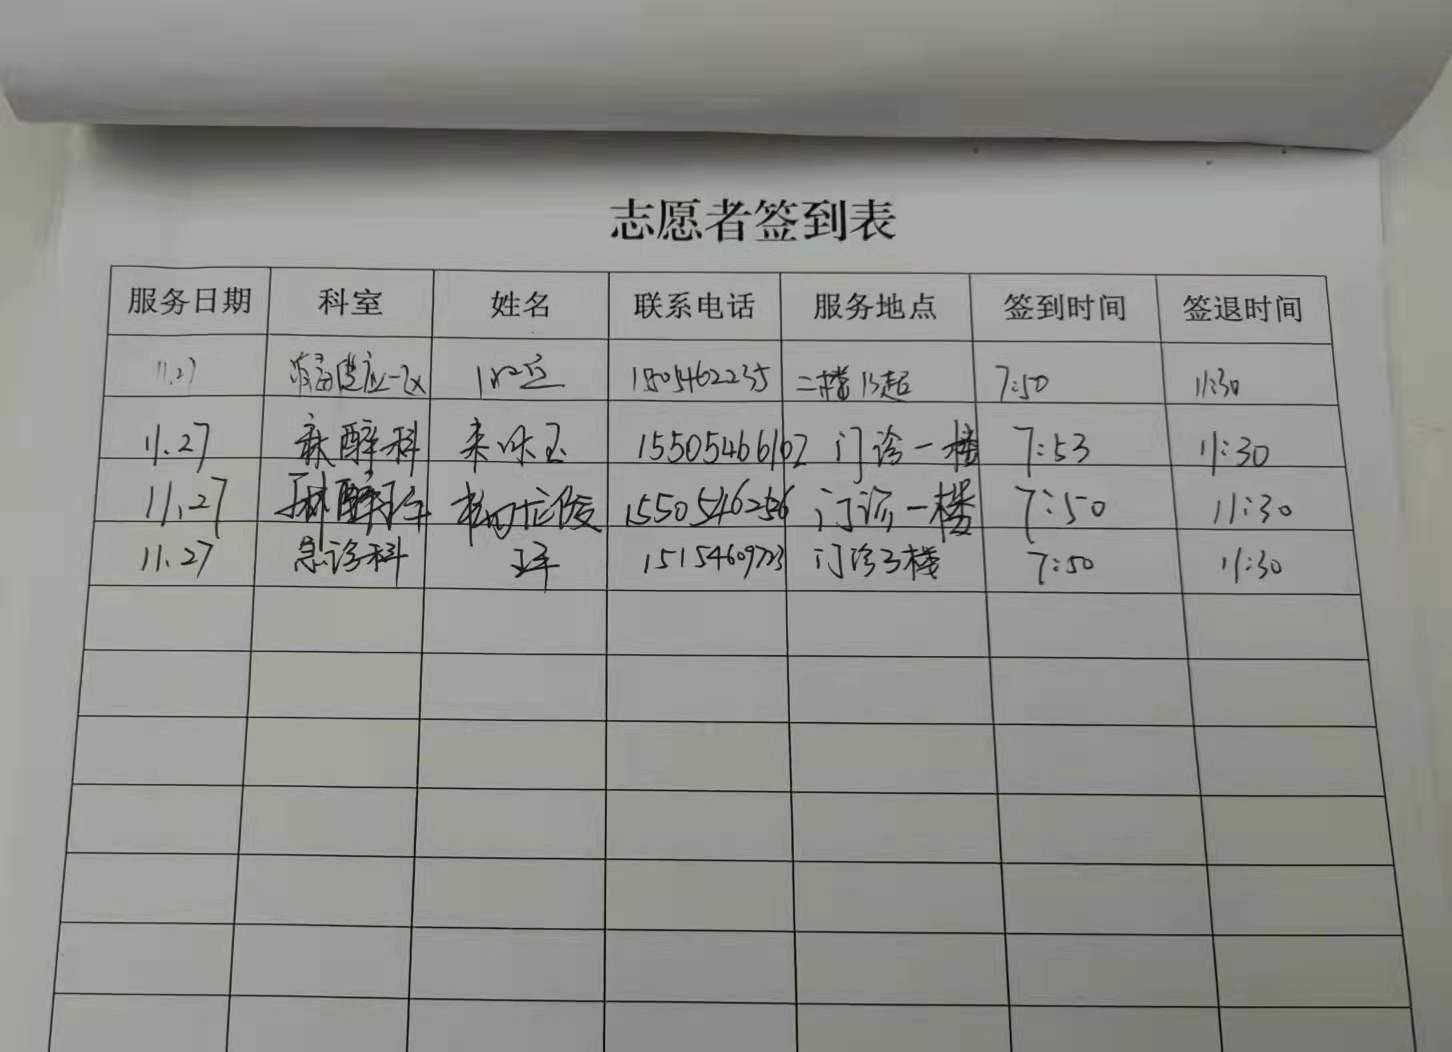 志愿者签到表
服务日期 科室 姓名 联系电话 服务地点 签到时间 签退时间
11.27 二楼 7:50 11:30
11.27 麻醉科 15505466102 门诊一楼 7:53 11:30
11.27 麻醉科 1550546256 门诊一楼 7:50 11:30
11.27 急诊科 15154609723 门诊3楼 7:50 11:30